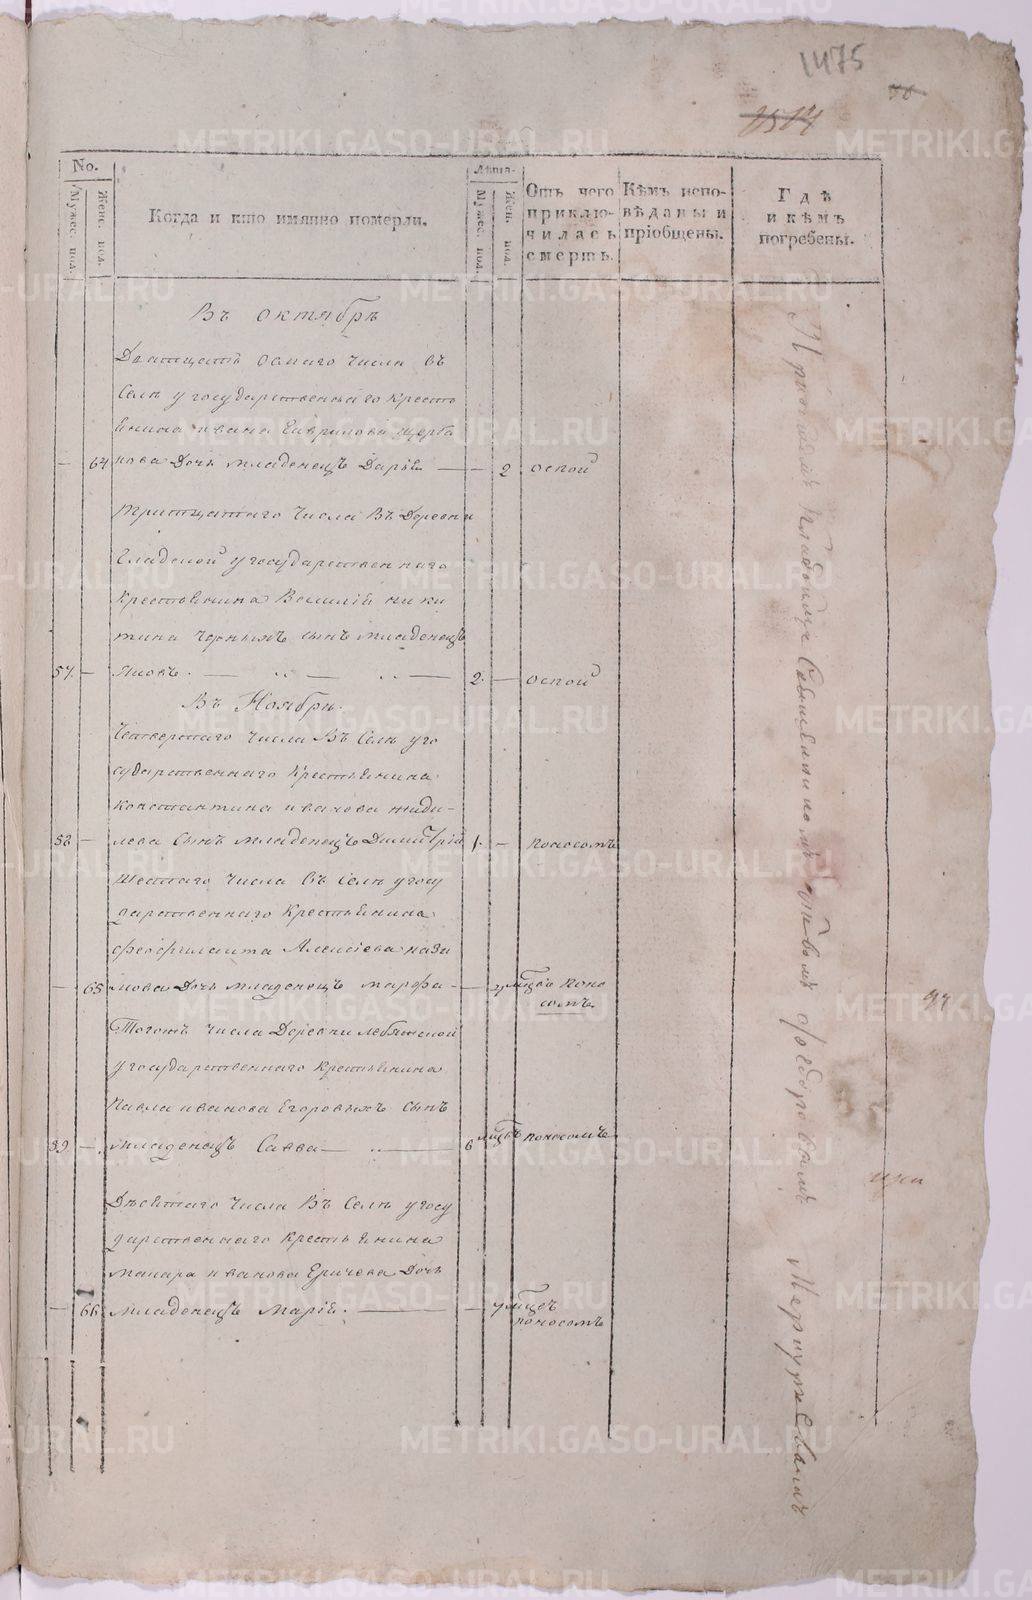 1475
No.
Мужес. пол.
Жен. пол.
Когда и кто имянно померли.
Лѣта.
Мужес. пол.
Жен. пол.
Отъ чего
приклю-
чилась
смерть.
Кѣмъ испо-
вѣданы и
пріобщены.
Гдѣ
и кѣмъ
погребены.
Въ октябрѣ
Дватцать осмаго числа въ
селѣ у государственнаго кресть
янина ивана Гаврилова щерба
64 кова дочь младенецъ Дарья 2 оспой
тритцатаго числа въ деревни
Гладской у государственнаго
крестьянина Василія ники
тина черныхъ сынъ младенецъ
57. Яковъ. 2. оспой
Въ Ноябрѣ.
Четвертаго числа въ селѣ у го
сударственнаго крестьянина
константина иванова жиди-
58 лева сынъ младенецъ Димитрій 1. поносомъ
шестаго числа въ селѣ у госу
дарственнаго крестьянина
феофилакта Алексіева нази
65 мова дочь младенецъ марфа поно
сомъ
Тогожъ числа деревни лебяжской
у государственнаго крестьянина
Павла иванова Егоровыхъ сынъ
59 младенецъ Савва 6 мцъ поносомъ
Девятаго числа въ селѣ у госу
дарственнаго крестьянина
макара иванова Ерычева дочь
66 младенецъ марія. поносомъ
METRIKI.GASO-URAL.RU